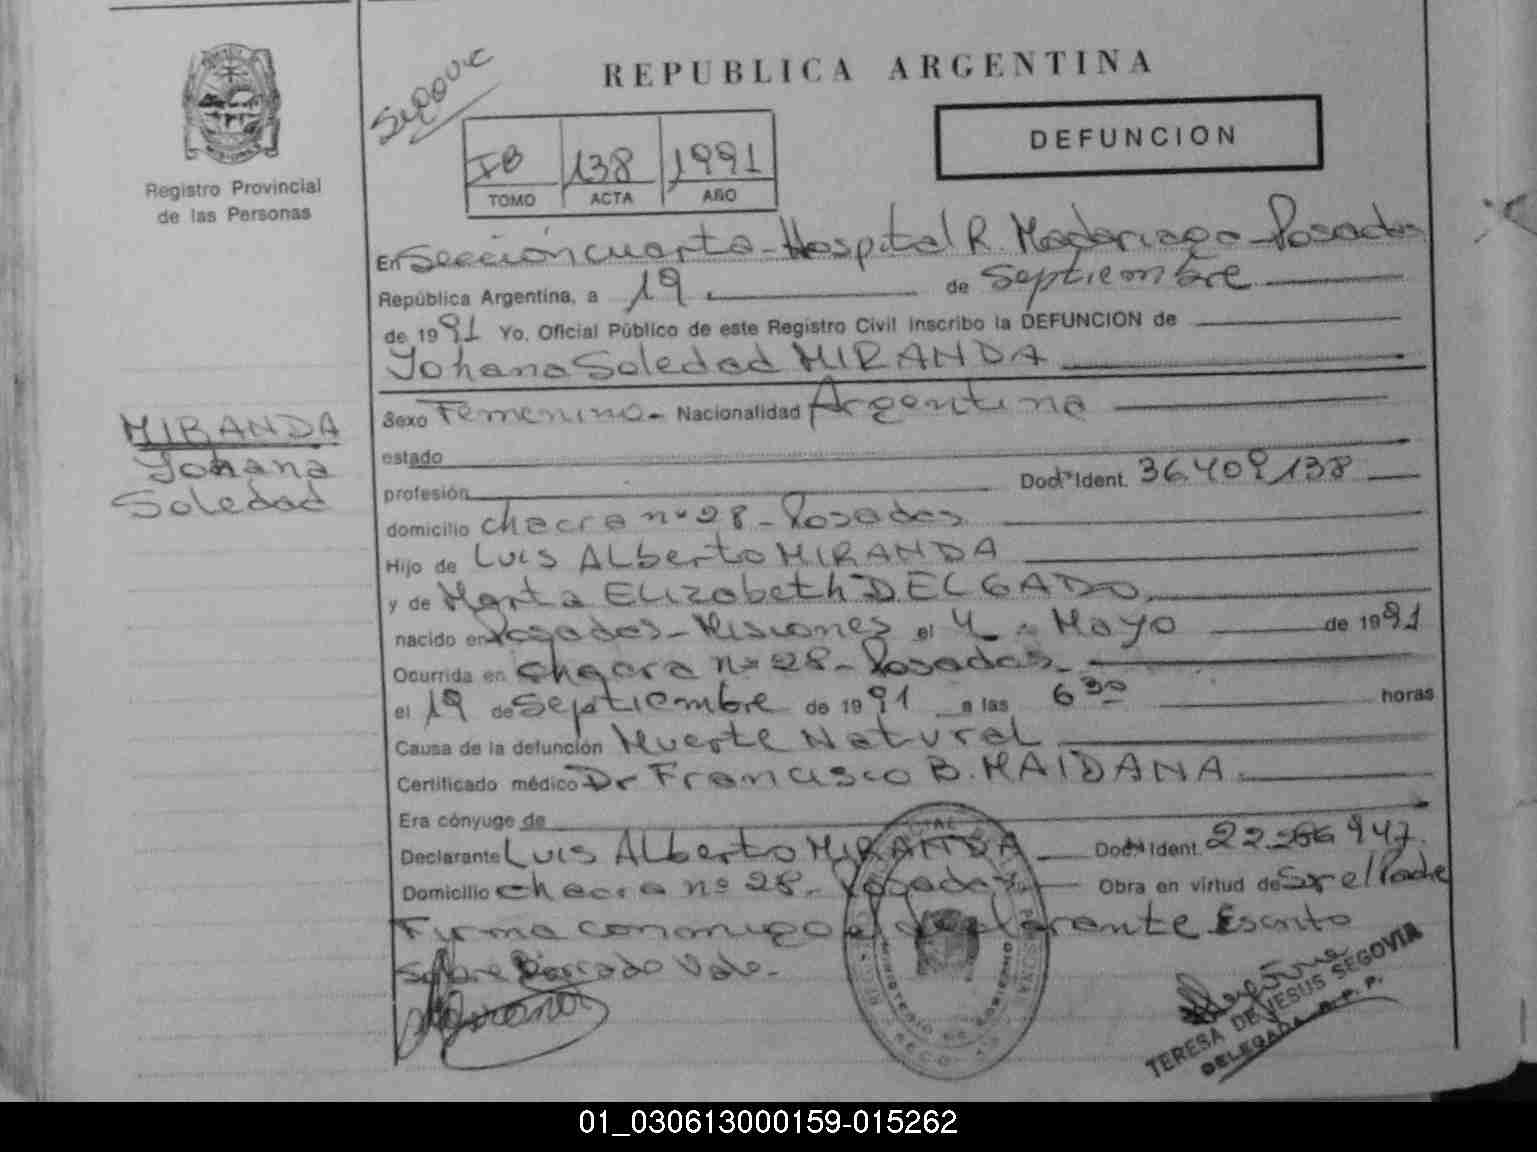 REPUBLICA ARGENTINA
DEFUNCION
Registro Provincial
de las Personas
IB 138 1991
TOMO ACTA AÑO
En Sección cuarta - Hospital R. Madariaga - Posadas
República Argentina, a 19 de Septiembre
de 1991 Yo, Oficial Público de este Registro Civil inscribo la DEFUNCION de
Yohana Soledad MIRANDA
MIRANDA
Yohana
Soledad
Sexo Femenino - Nacionalidad Argentina
estado
profesión Doc. Ident. 36.409.138
domicilio chacra nº 28 - Posadas
Hijo de Luis Alberto MIRANDA
y de Marta Elizabeth DELGADO
nacido en Posadas - Misiones el 4 Mayo de 1991
Ocurrida en chacra nº 28 - Posadas
el 19 de Septiembre de 1991 a las 6 30 horas
Causa de la defunción Muerte Natural
Certificado médico Dr Francisco B. MAIDANA
Era cónyuge de
Declarante Luis Alberto MIRANDA Doc. Ident. 22.266.947
Domicilio chacra nº 28 - Posadas Obra en virtud de Ser el Padre
Firma conmigo el declarante Escrito
Sobre Borrado Vale -
MINISTERIO DE GOBIERNO
TERESA DE JESUS SEGOVIA
DELEGADA R. P. P.
01_030613000159-015262